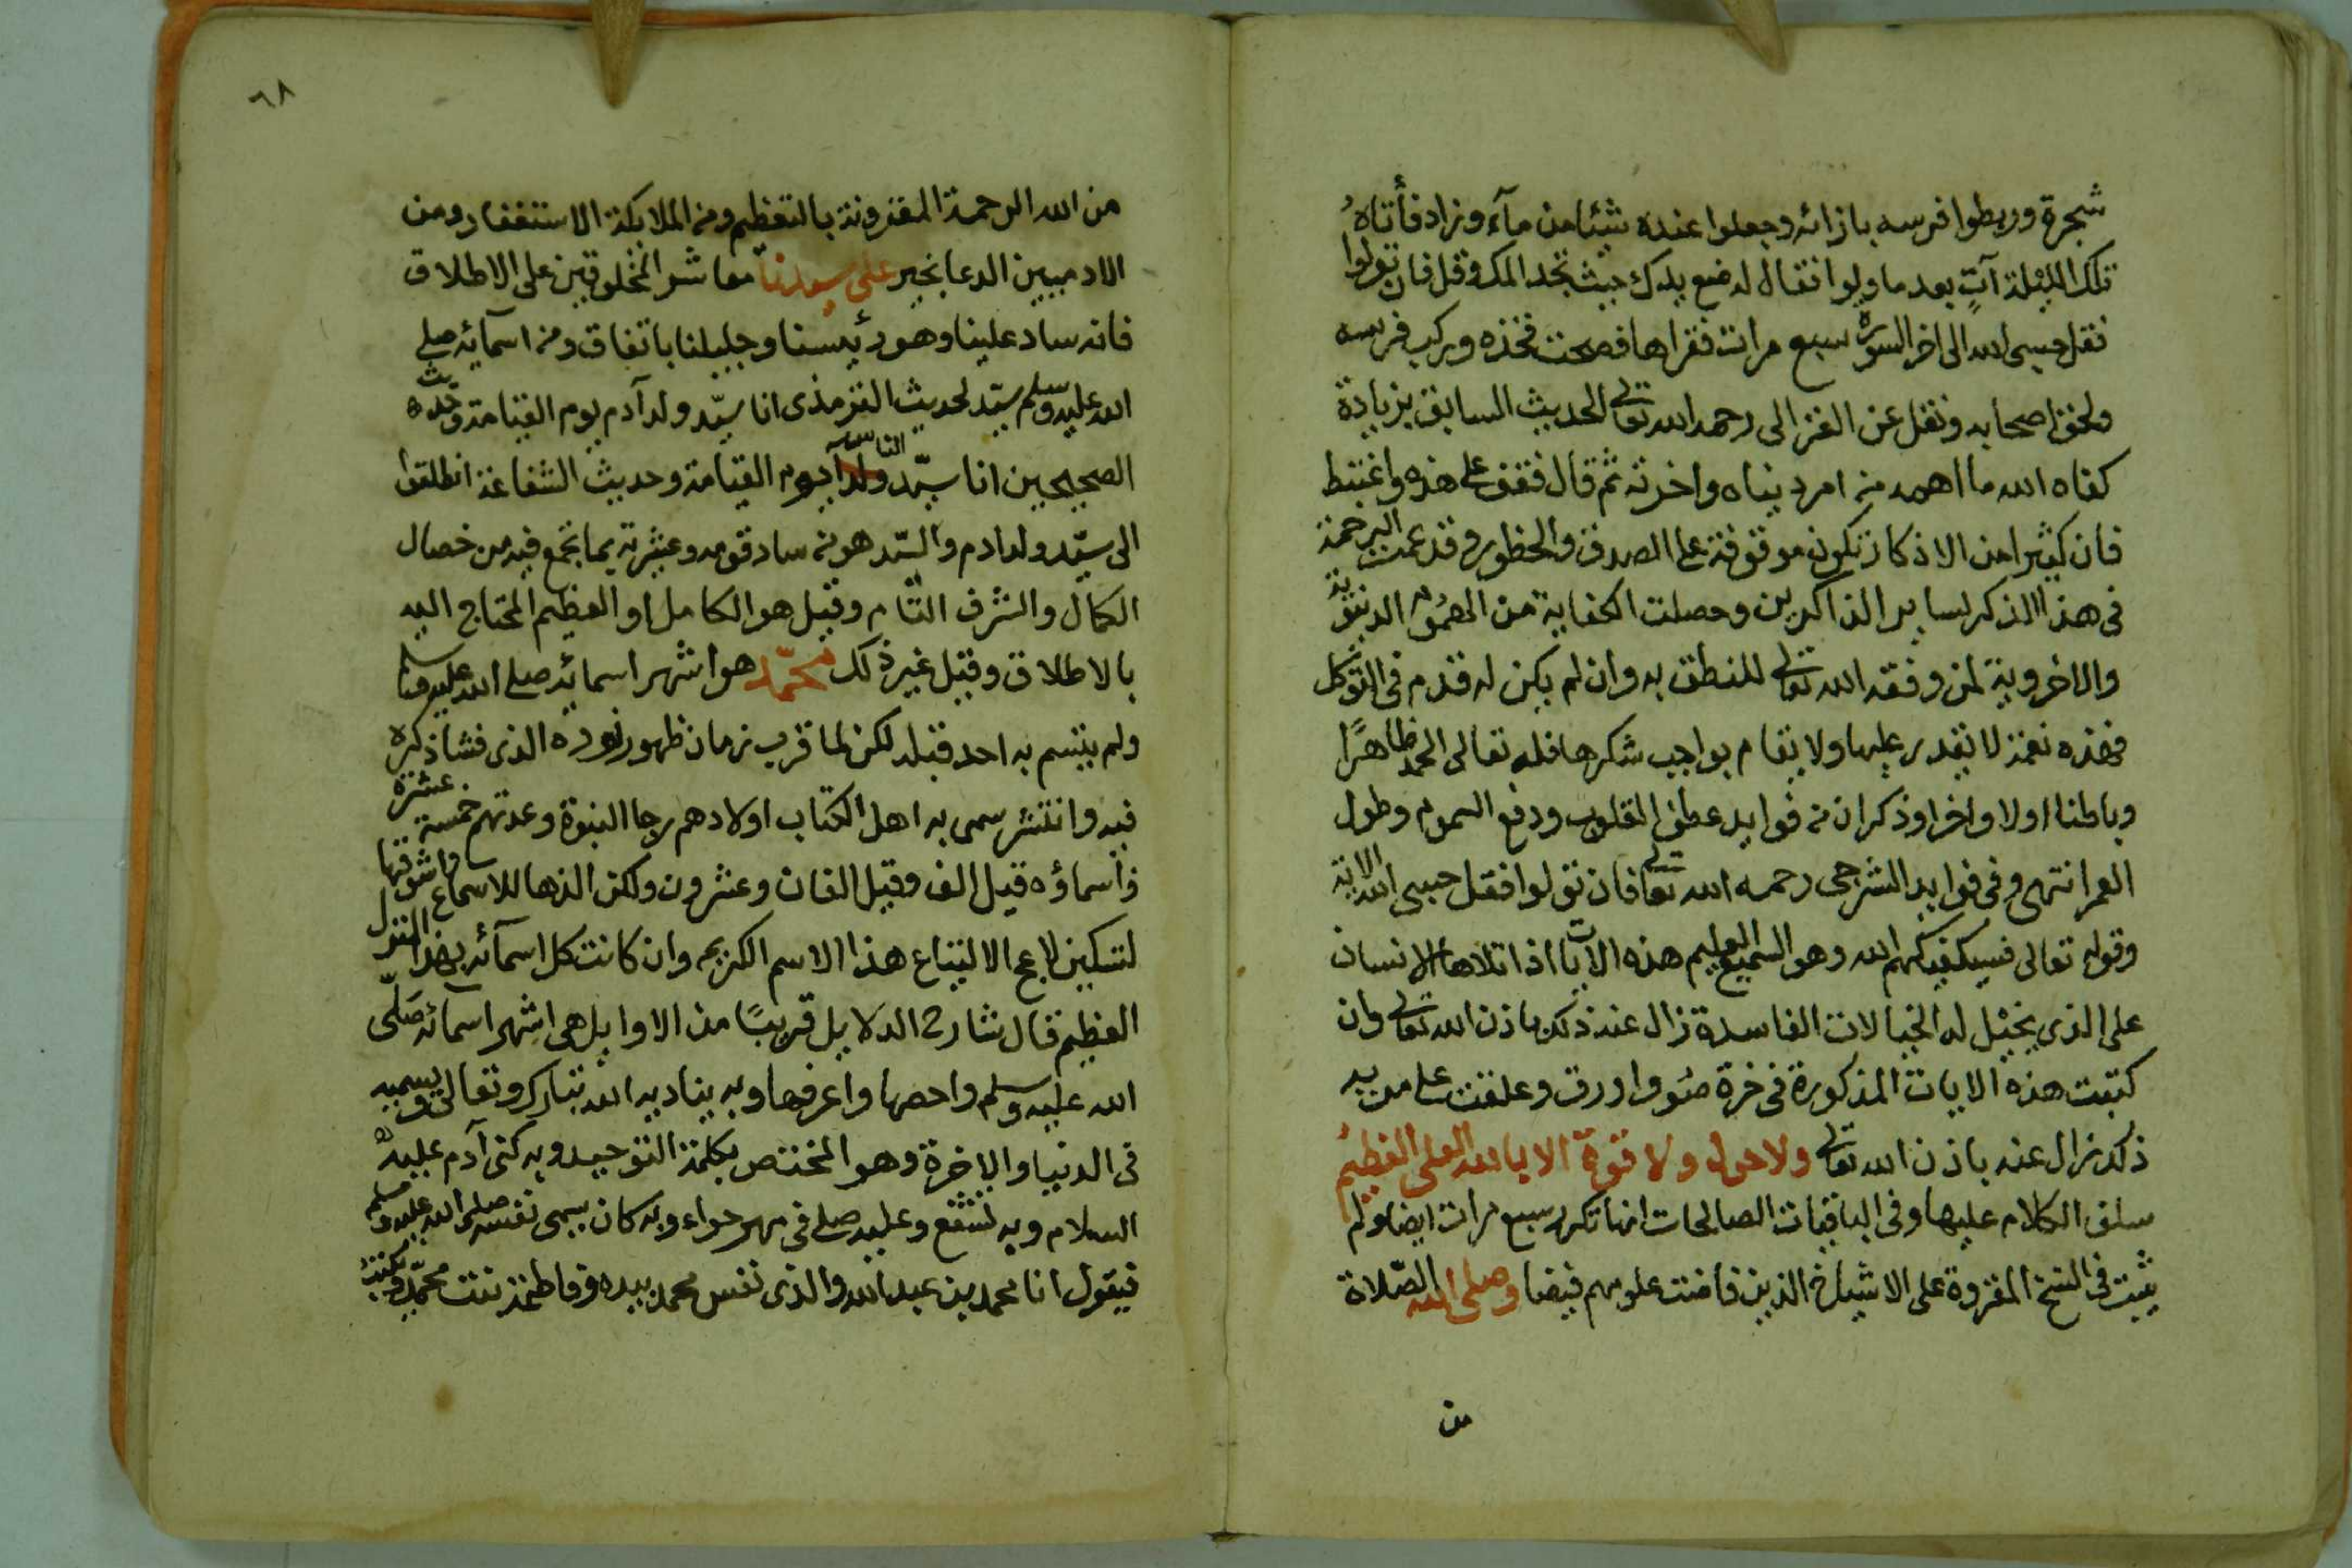 شجرة وربطوا فرسه بازائه وجعلوا عنده شيئا من مآء وزاد فأتاهُ
تلك الليلة آتٍ بعد ما ولوا فقال له ضع يدك حيث تجد المك وقل فان تولوا
فقل حسبى الله الى اخر السورة سبع مرات فقراها فصحت فخذه وركب فرسه
ولحق اصحابه ونقل عن الغزالى رحمه الله تعالى الحديث السابق بزيادة
كفاه الله ما اهمه من امر دنياه واخرته ثم قال فقف على هذه واغتبط
فان كثيرا من الاذكار تكون موقوفة على الصدق والحظور وقد عمت الرحمة
فى هذا الذكر لساير الذاكرين وحصلت الكفاية من الهموم الدنيوية
والاخروية لمن وفقه الله تعالى للنطق به وان لم يكن له قدم فى التوكل
فهذه نعمة لا يقدر عليها ولا يقام بواجب شكرها فله تعالى الحمد ظاهرًا
وباطنا اولا واخرا وذكر ان من فوايد عطف القلوب ودفع السموم وطول
العمر انتهى وفى فوايد الشرجى رحمه الله تعالى فان تولوا فقل حسبى الله الاية
وقوله تعالى فسيكفيكهم الله وهو السميع العليم هذه الايات اذا تلاها الانسان
على الذى يخيل له الخيالات الفاسدة زال عنه ذلك باذن الله تعالى وان
كتبت هذه الايات المذكورة فى خرقة او ورق وعلقت على من به
ذلك زال عنه باذن الله تعالى ولا حول ولا قوة الا بالله العلى العظيم
سلف الكلام عليها وفى الباقيات الصالحات انها تكرر سبع مرات ايضا ولم
يثبت فى النسخ المقروة على الاشياخ الذين فاضت علومهم فيضا وصلى الله الصّلاة
من
٦٨
من الله الرحمة المقرونة بالتعظيم ومن الملائكة الاستغفار ومن
الادميين الدعا بخير على سيدنا معاشر المخلوقين على الاطلاق
فانه ساد علينا وهو رئيسنا وجليلنا باتفاق ومن اسمآئه صلى
الله عليه وسلم سيّد لحديث الترمذى انا سيّد ولد آدم يوم القيامة وحديث
الصحيحين انا سيّد ولد آ الناس يوم القيامة وحديث الشفاعة انطلقوا
الى سيّد ولد ادم والسّيد هو من ساد قومه وعشيرته بما تجمع فيه من خصال
الكمال والشرف التام وقيل هو الكامل او العظيم المحتاج اليه
بالاطلاق وقيل غير ذلك محمّد هو اشهر اسمائه صلى الله عليه وسلم
ولم يتسم به احد قبله لكن لما قرب زمان ظهور نوره الذى فشا ذكره
فيه وانتشر سمى به اهل الكتاب اولادهم رجا النبوة وعدتهم خمسة عشرة
واسماؤه قيل الف وقيل الفان وعشرون ولكن الذها للاسماع واشوقها
لتسكين لاعج الالتياع هذا الاسم الكريم وان كانت كل اسمآئه بهذا المنزل
العظيم قال شارح الدلايل قريبًا من الاوايل هى اشهر اسمائه صَلّى
الله عليه وسلم واخصها واعرفها وبه يناديه الله تبارك وتعالى ويسميه
فى الدنيا والاخرة وهو المختص بكلمة التوحيد وبه كنى آدم عليه
السلام وبه تشفع وعليه صلى فى مهر حواء وبه كان يسمى نفسه صلى الله عليه وسلم
فيقول انا محمد بن عبد الله والذى نفس محمد بيده وفاطمة بنت محمّد ويكتب